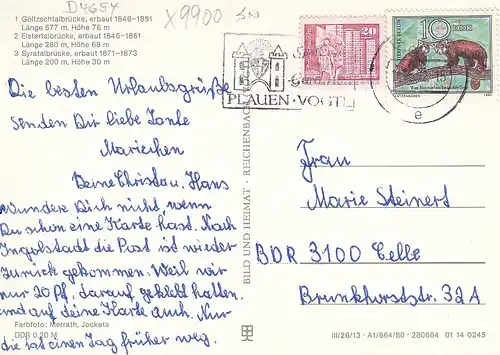 D4654
X9900 SN
1 Göltzschtalbrücke, erbaut 1846–1851
Länge 577 m, Höhe 78 m
2 Elstertalbrücke, erbaut 1846–1851
Länge 280 m, Höhe 68 m
3 Syratalbrücke, erbaut 1871–1873
Länge 200 m, Höhe 30 m
20
10 DDR
PLAUEN · VOGTL
e
Die besten Urlaubsgrüße
senden Dir liebe Tante
Mariechen
Deine Christa u. Hans
Wundere Dich nicht, wenn
Du schon eine Karte hast. Nach
Ingolstadt die Post ist wieder
zurück gekommen. Weil wir
nur 20 Pf. darauf geklebt hatten.
und auf deine Karte auch. Nur
die ist einen Tag früher weg.
Farbfoto: Merrath, Jocketa
DDR 0,20 M
BILD UND HEIMAT · REICHENBACH
Frau
Marie Steinert
BDR 3100 Celle
Brunkhorststr. 32A
III/26/13 - A1/664/80 - 280664 01 14 0245